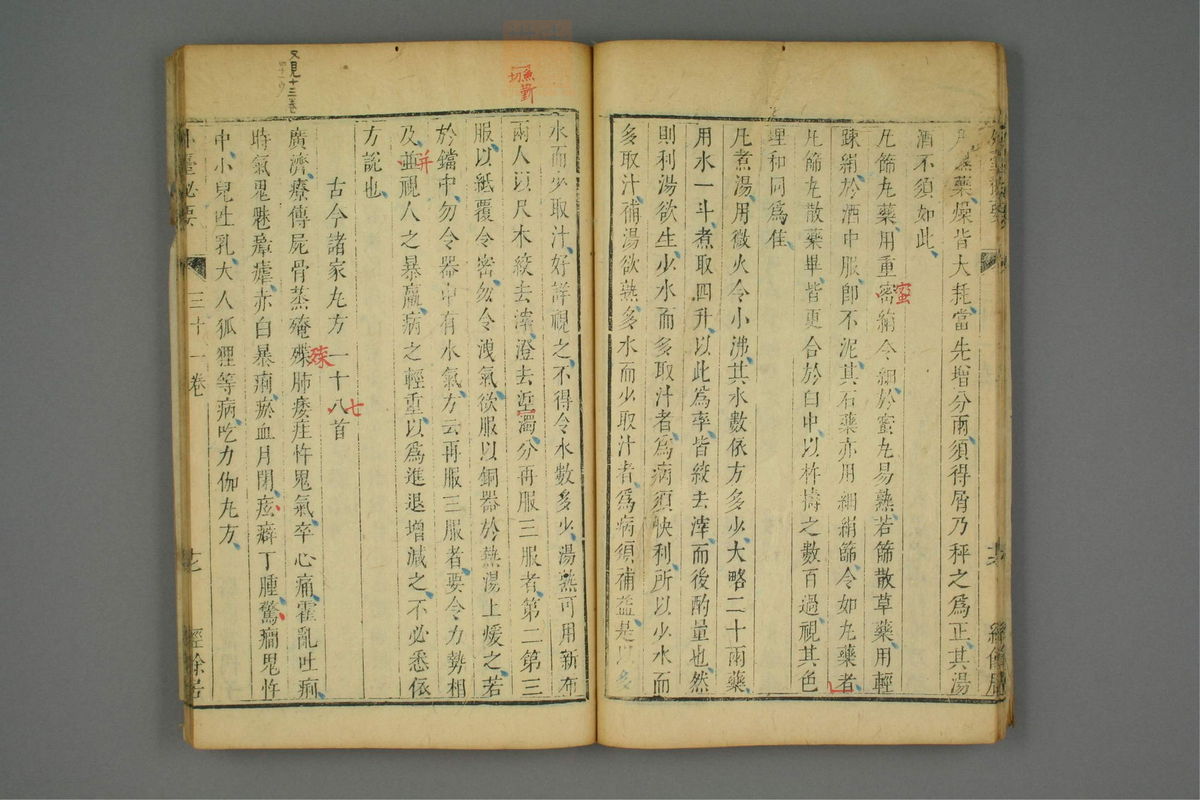 凡湿藥燥皆大耗當先增分兩須得屑乃秤之爲正其湯
酒不須如此
凡篩丸藥用重密絹令細於蜜丸易熟若篩散草藥用輕
蜜
踈絹於酒中服即不泥其石藥亦用細絹篩令如丸藥者
凡篩丸散藥畢皆更合於臼中以杵擣之數百過視其色
理和同爲佳
凡煮湯用微火令小沸其水數依方多少大略二十兩藥
用水一斗煮取四升以此爲率皆絞去滓而後酌量也然
則利湯欲生少水而多取汁者爲病須快利所以少水而
多取汁補湯欲熟多水而少取汁者爲病須補益是以多
水而少取汁好詳視之不得令水數多少湯熟可用新布
魚斳
切
兩人以尺木絞去滓澄去垽濁分再服三服者第二第三
服以紙覆令密勿令洩氣欲服以銅器於熱湯上煖之若
於鐺中勿令器中有水氣方云再服三服者要令力勢相
及並視人之暴羸病之輕重以爲進退增減之不必悉依
并
方説也
古今諸家丸方一十八首
七
又見十三卷
廣濟療傳屍骨蒸殗殜肺痿疰忤鬼氣卒心痛霍亂吐痢
殗
時氣鬼魅瘴瘧赤白暴痢瘀血月閉痃癖丁腫驚癎鬼忤
中小兒吐乳大人狐狸等病吃力伽丸方
外臺必要
三十一卷
十七
經餘居